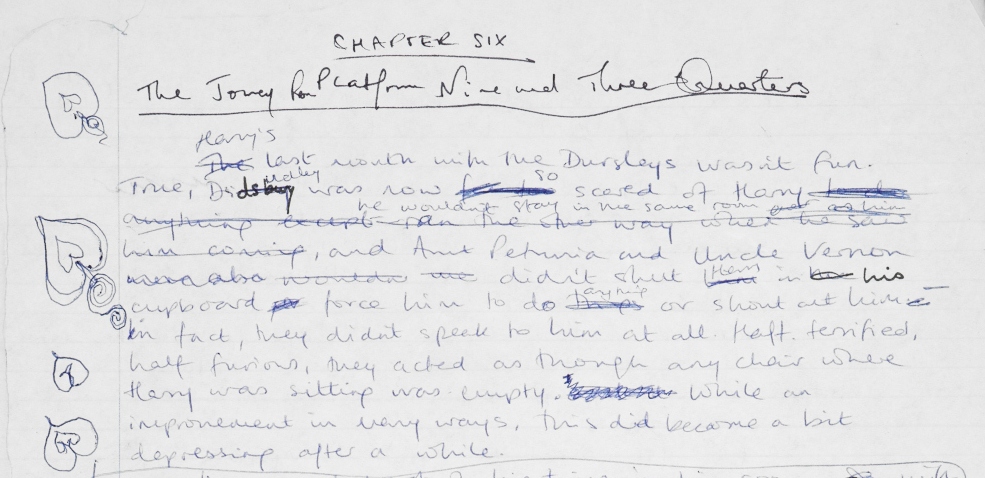 CHAPTER SIX
The Journey from Platform Nine and Three Quarters
Harry's
The last month with the Dursleys wasn't fun.
udley so
True, Didsbury was now scared of Harry
he wouldn't stay in the same room as him
anything except run the other way when he saw
him coming, and Aunt Petunia and Uncle Vernon
Harry
didn't shut in his
anything
cupboard or force him to do things or shout at him
in fact, they didn't speak to him at all. Half terrified,
half furious, they acted as though any chair where
Harry was sitting was empty. While an
improvement in many ways, this did become a bit
depressing after a while.